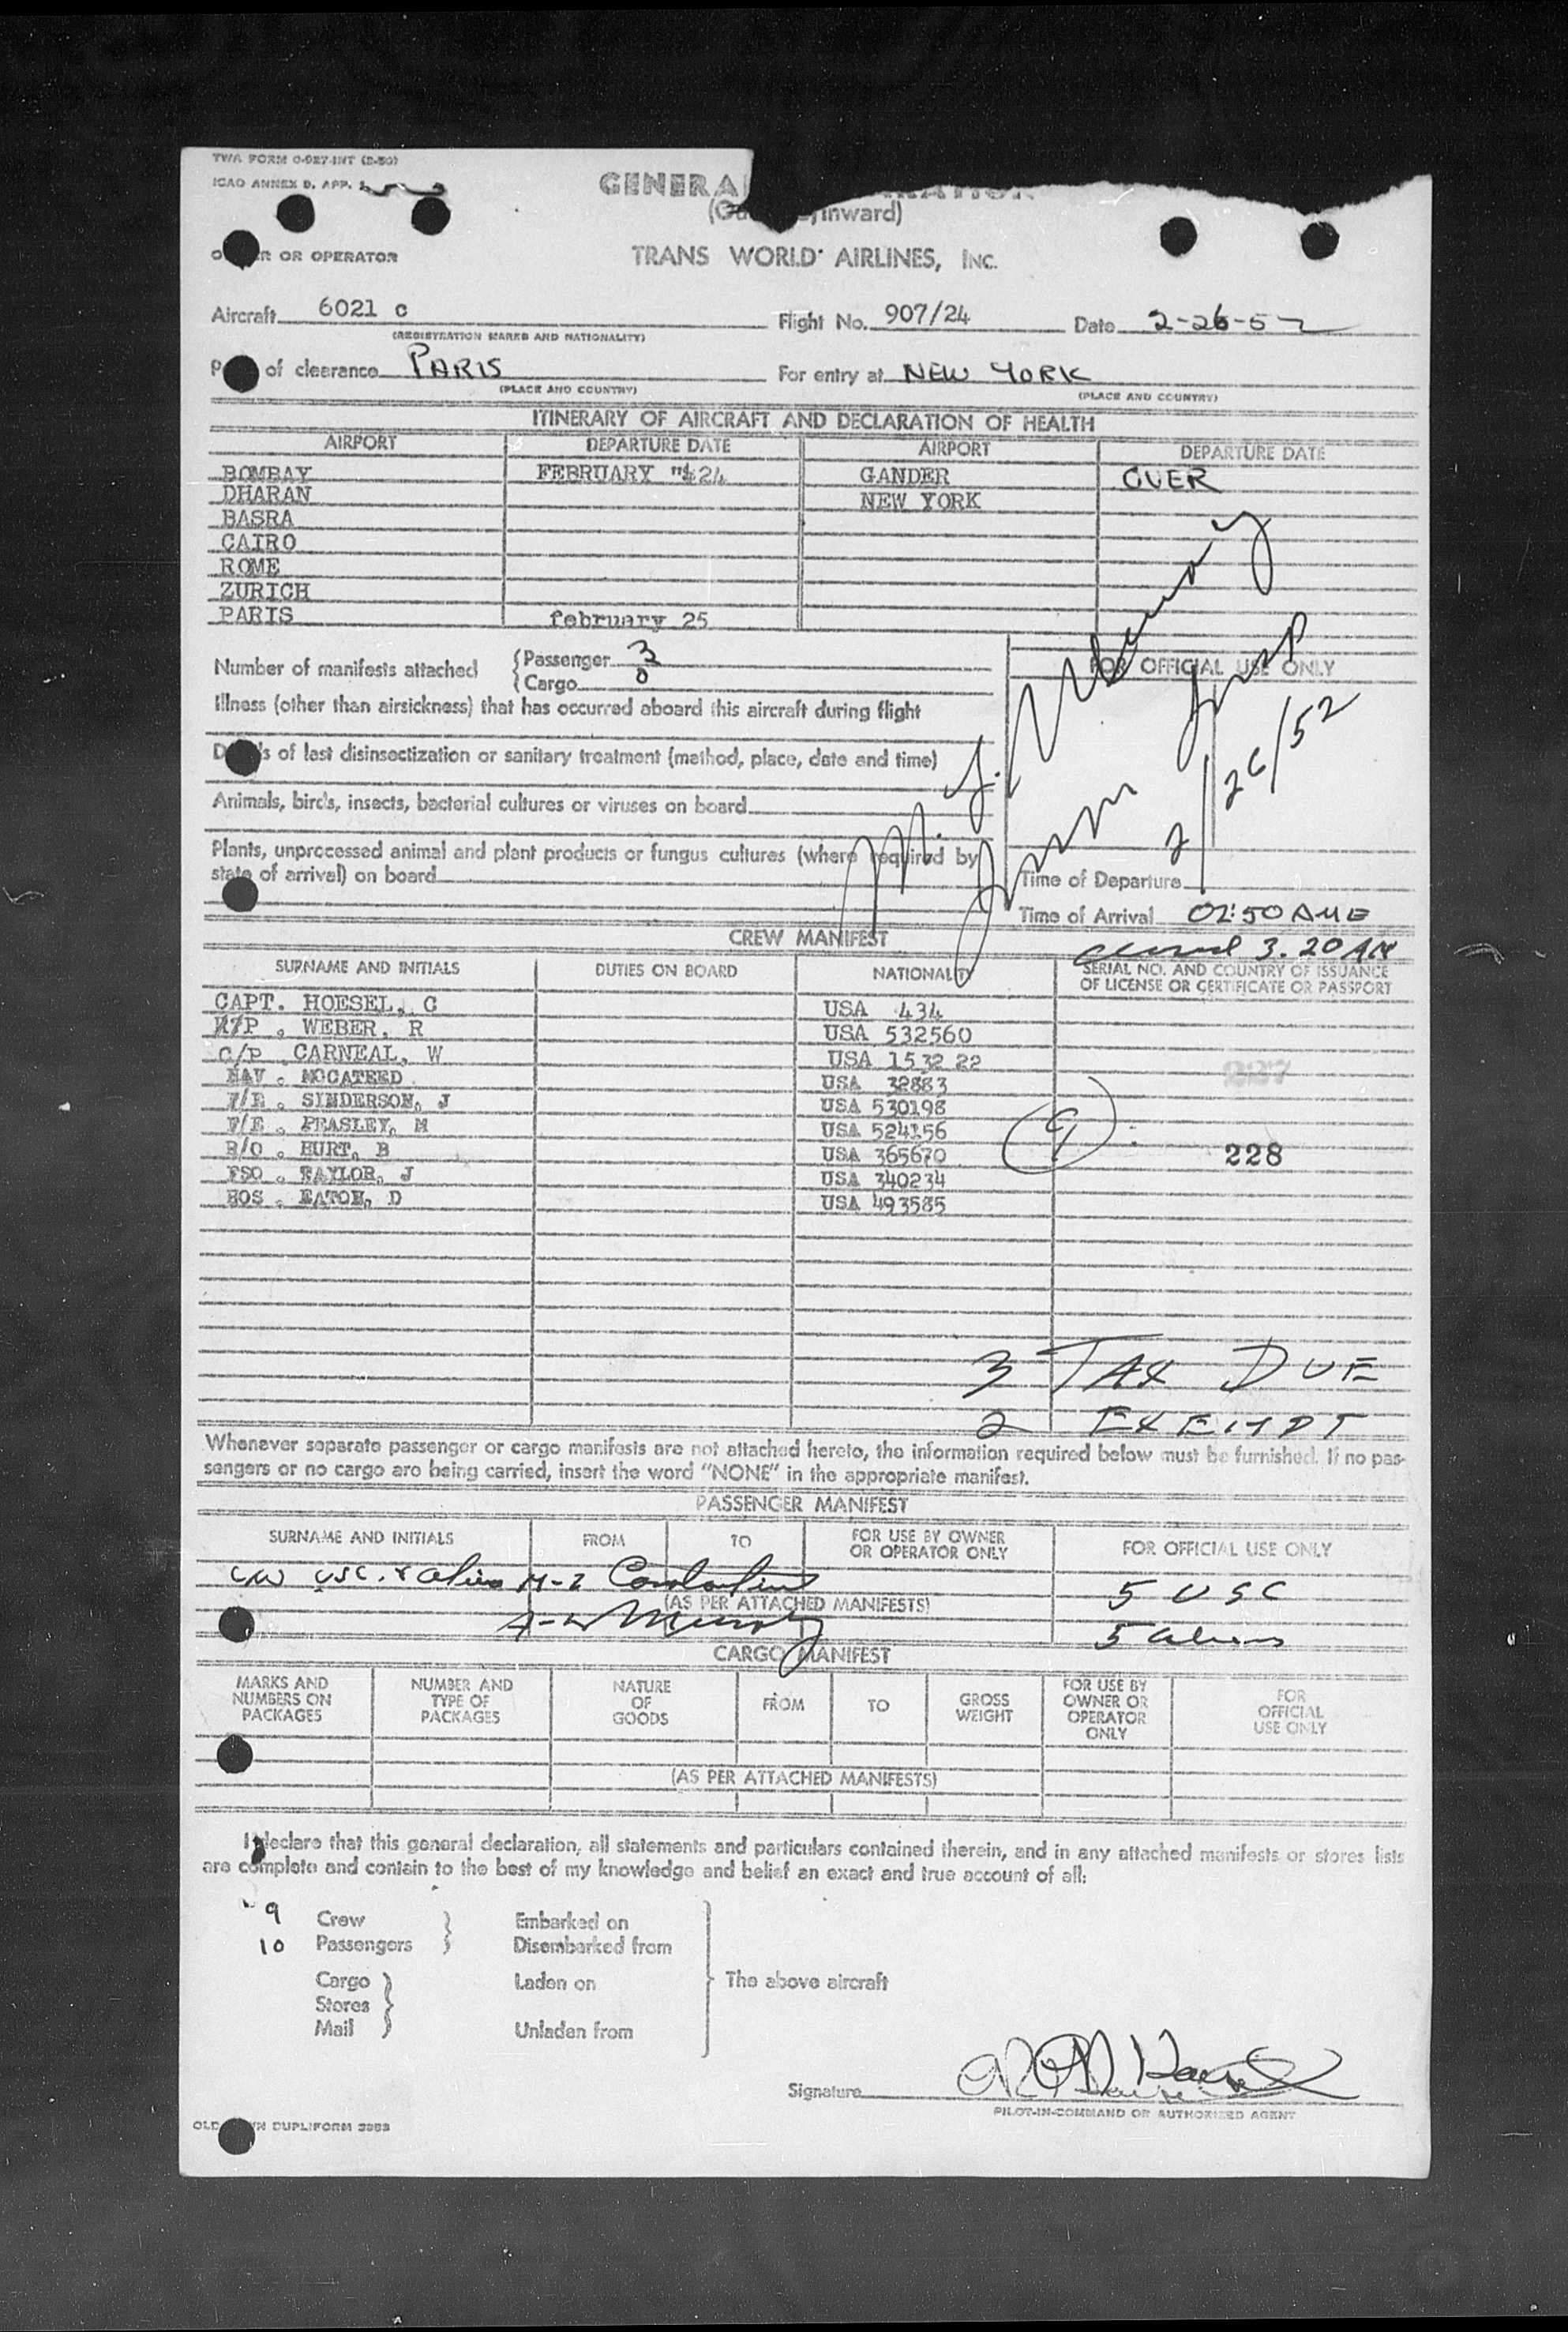 TWA FORM O-927-INT (2-50)
ICAO ANNEX 9, APP. 1
GENERA
(Ou inward)
OR OPERATOR
TRANS WORLD AIRLINES, INC.
Aircraft 6021 c Flight No. 907/24 Date 2-26-52
(REGISTRATION MARKS AND NATIONALITY)
P of clearance PARIS For entry at NEW YORK
(PLACE AND COUNTRY) (PLACE AND COUNTRY)
ITINERARY OF AIRCRAFT AND DECLARATION OF HEALTH
AIRPORT DEPARTURE DATE AIRPORT DEPARTURE DATE
BOMBAY FEBRUARY 24 GANDER OVER
DHARAN NEW YORK
BASRA
CAIRO
ROME
ZURICH
PARIS february 25
Number of manifests attached { Passenger 3
{ Cargo 0
FOR OFFICIAL USE ONLY
Illness (other than airsickness) that has occurred aboard this aircraft during flight
D s of last disinsectization or sanitary treatment (method, place, date and time)
2/26/52
Animals, birds, insects, bacterial cultures or viruses on board
Plants, unprocessed animal and plant products or fungus cultures (where required by
state of arrival) on board
Time of Departure
Time of Arrival 02:50 AME
3.20 AM
CREW MANIFEST
SURNAME AND INITIALS DUTIES ON BOARD NATIONALITY SERIAL NO. AND COUNTRY OF ISSUANCE
OF LICENSE OR CERTIFICATE OR PASSPORT
CAPT. HOESEL, C USA 434
P . WEBER, R USA 532560
C/P . CARNEAL, W USA 1532 22
NAV . MOCATEED USA 32883
227
F/E . SINDERSON, J USA 530198
F/E . PEASLEY, M USA 524156
9
R/O . HURT, B USA 365670
228
FSO . TAYLOR, J USA 340234
HOS . EATON, D USA 493585
3 TAX DUE
2 EXEMPT
Whenever separate passenger or cargo manifests are not attached hereto, the information required below must be furnished. If no pas-
sengers or no cargo are being carried, insert the word "NONE" in the appropriate manifest.
PASSENGER MANIFEST
SURNAME AND INITIALS FROM TO FOR USE BY OWNER
OR OPERATOR ONLY FOR OFFICIAL USE ONLY
USC. & aliens 5 USC
(AS PER ATTACHED MANIFESTS)
5 aliens
CARGO MANIFEST
MARKS AND
NUMBERS ON
PACKAGES
NUMBER AND
TYPE OF
PACKAGES
NATURE
OF
GOODS
FROM
TO
GROSS
WEIGHT
FOR USE BY
OWNER OR
OPERATOR
ONLY
FOR
OFFICIAL
USE ONLY
(AS PER ATTACHED MANIFESTS)
I declare that this general declaration, all statements and particulars contained therein, and in any attached manifests or stores lists
are complete and contain to the best of my knowledge and belief an exact and true account of all:
9 Crew } Embarked on
10 Passengers } Disembarked from
Cargo } Laden on The above aircraft
Stores
Mail } Unladen from
Signature
PILOT-IN-COMMAND OR AUTHORIZED AGENT
OLD WN DUPLIFORM 3983